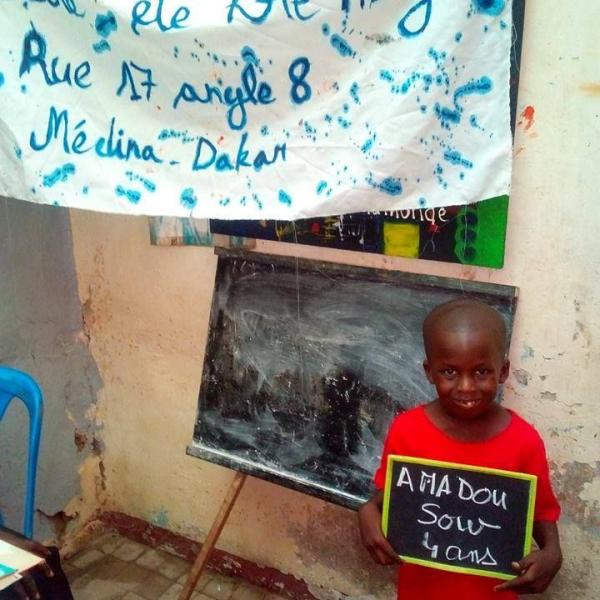 été
Rue 17 angle 8
Médina - Dakar
monde
AMADOU
Sow
4 ans